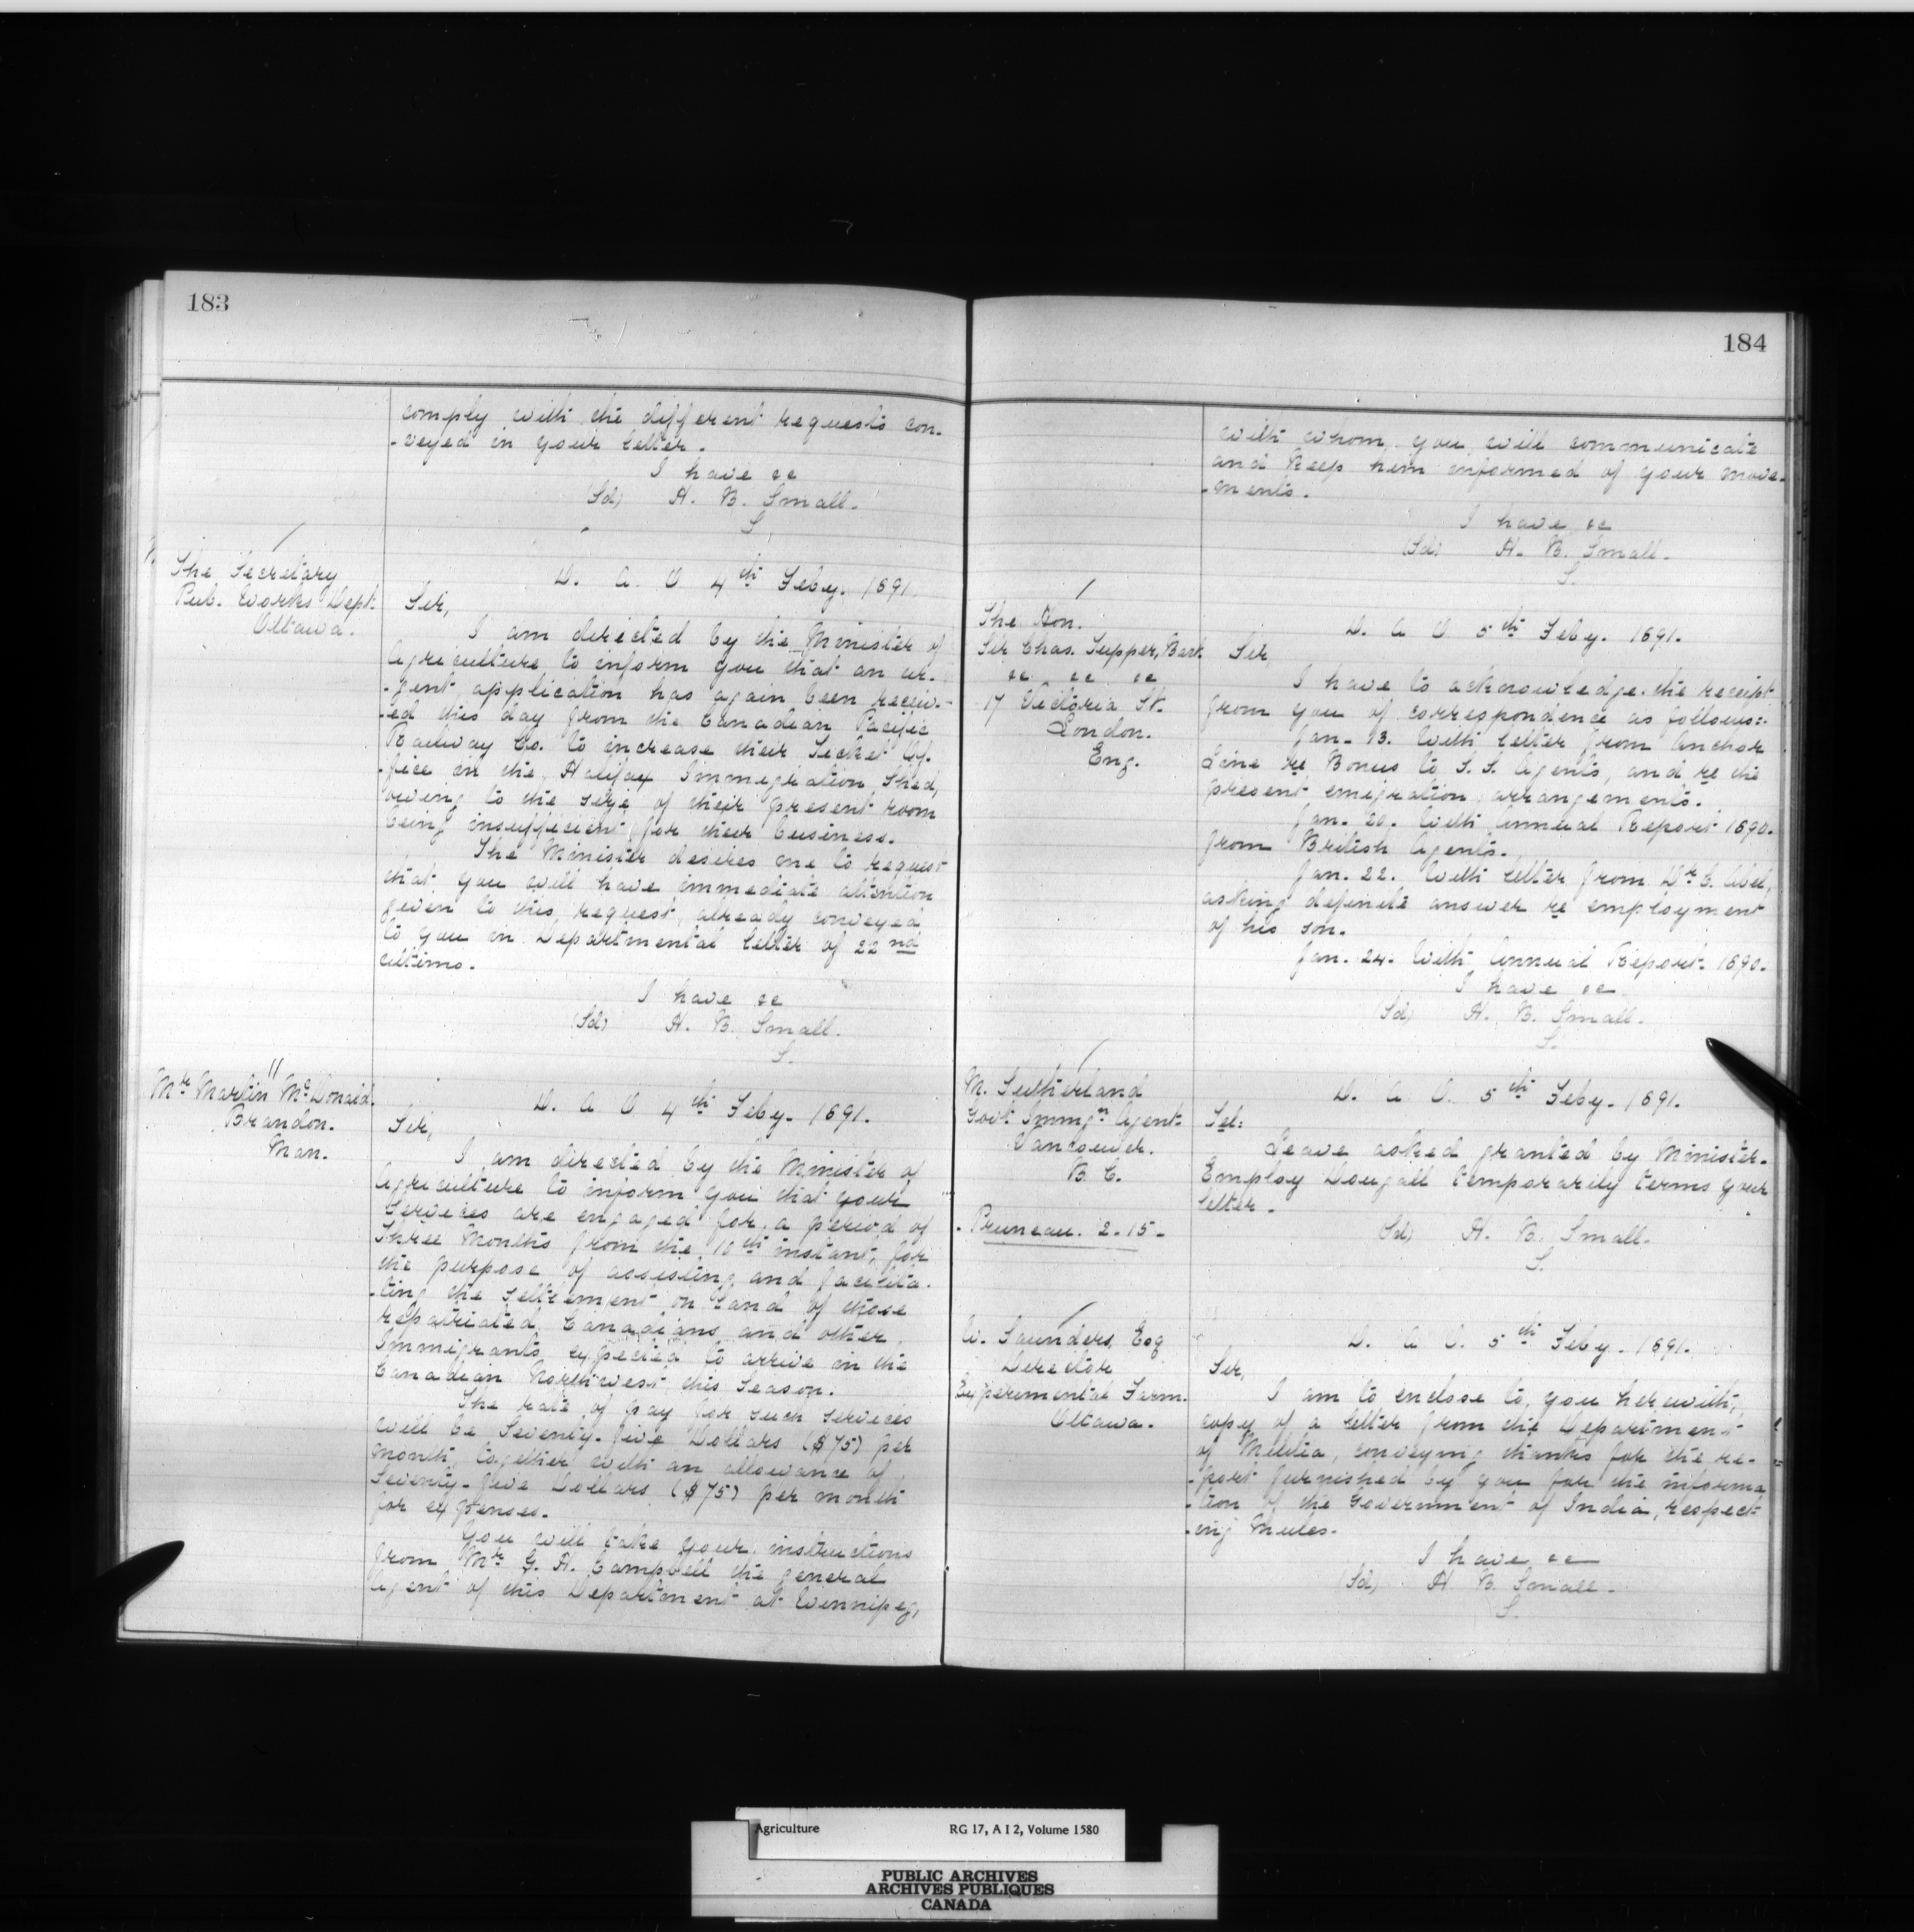 183
comply with the different requests con-
-veyed in your letter.
I have &c
(Sd) H. B. Small.
S.
The Secretary
Pub. Works Dept.
Ottawa.
D. A. O 4th Feby. 1891.
Sir,
I am directed by the Minister of
Agriculture to inform you that an ur-
-gent application has again been receiv-
-ed this day from the Canadian Pacific
Railway Co. to increase their Ticket Of-
-fice in the Halifax Immigration Shed,
owing to the size of their present room
being insufficient for their business.
The Minister desires me to request
that you will have immediate attention
given to this request, already conveyed
to you in Departmental letter of 22nd
ultimo.
I have &c
(Sd) H. B. Small.
S.
Mr Martin McDonald.
Brandon.
Man.
D. A O 4th Feby. 1891.
Sir,
I am directed by the Minister of
Agriculture to inform you that your
Services are engaged for a period of
Three Months from the 10th instant, for
the purpose of assisting and facilita-
-ting the settlement on land of those
repatriated Canadians and other
Immigrants expected to arrive in the
Canadian Northwest this Season.
The rate of pay for such services
will be Seventy-five Dollars ($75) per
month, together with an allowance of
Seventy-five Dollars ($75) per month
for expenses.
You will take your instructions
from Mr G. H. Campbell the general
Agent of this Department at Winnipeg,
184
with whom you will communicate
and Keep him informed of your move-
-ments.
I have &c
(Sd) H. B. Small.
S.
The Hon.
Sir Chas. Tupper, Bart.
&c. &c. &c
17 Victoria St.
London.
Eng.
D. A O 5th Feby. 1891.
Sir
I have to acknowledge the receipt
from you of correspondence as follows:-
Jan. 13. With letter from Anchor
Line re Bonus to S. S. Agents, and re the
present emigration arrangements.
Jan. 20. With Annual Report 1890.
from British Agents.
Jan. 22. With letter from Dr C. Abel,
asking definite answer re employment
of his son.
Jan. 24. With Annual Report. 1890.
I have &c
(Sd) H. B. Small.
S.
M. Sutherland
Govt Immgn Agent
Vancouver.
B. C.
Pruneau. 2.15-
D. A O. 5th Feby. 1891.
Tel:
Leave asked granted by Minister.
Employ Dougall temporarily terms your
letter.
(Sd) H. B. Small.
S.
W. Saunders, Esq
Director
Experimental Farm.
Ottawa.
D. A O. 5th Feby. 1891.
Sir,
I am to enclose to you herewith,
copy of a letter from the Department
of Militia, conveying thanks for the re-
-port furnished by you for the informa
-tion of the Government of India, respect-
-ing Mules.
I have &c
(Sd) H B. Small.
S.
Agriculture RG 17, A I 2, Volume 1580
PUBLIC ARCHIVES
ARCHIVES PUBLIQUES
CANADA